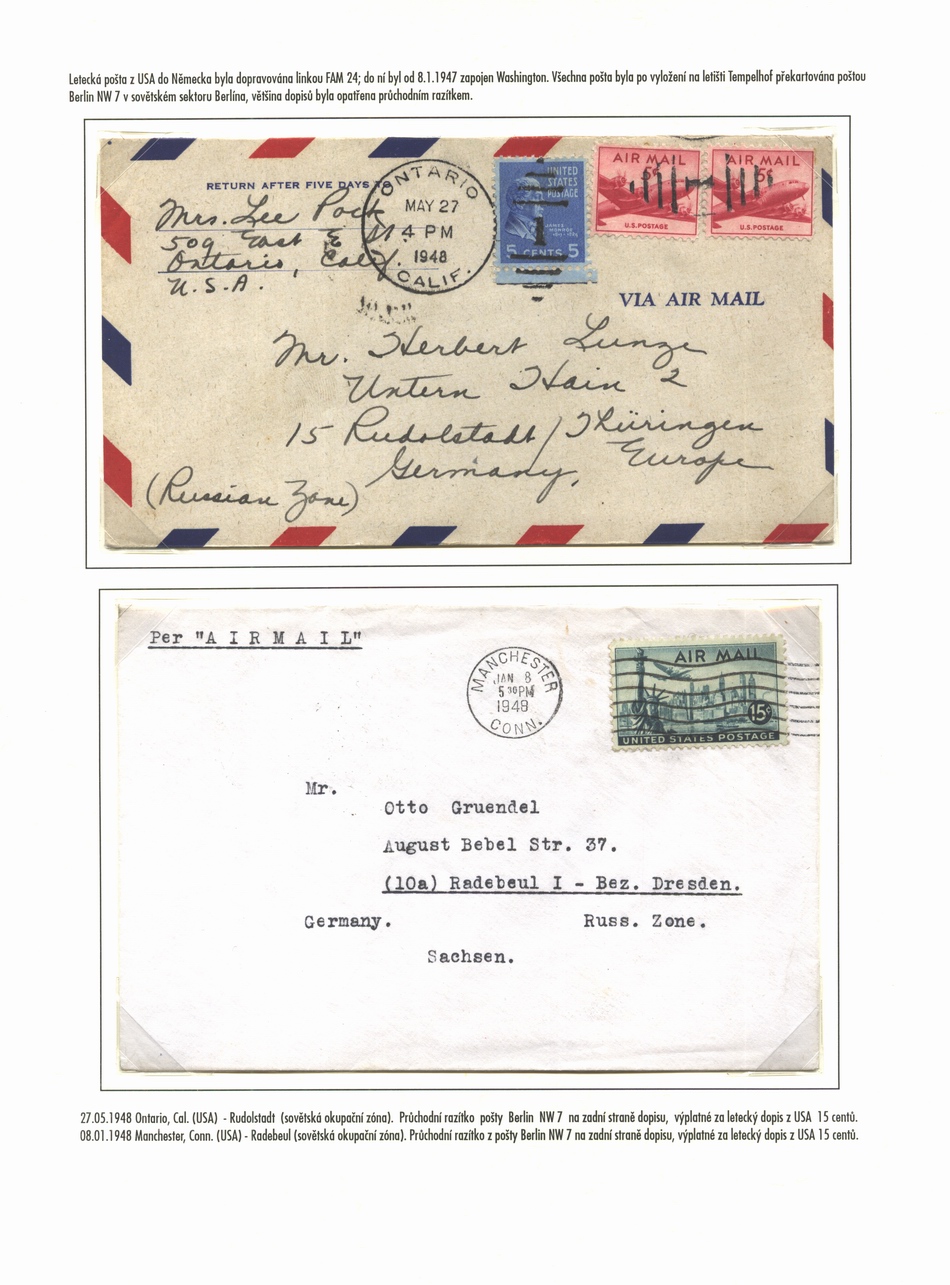 Letecká pošta z USA do Německa byla dopravována linkou FAM 24; do ní byl od 8.1.1947 zapojen Washington. Všechna pošta byla po vyložení na letišti Tempelhof překartována poštou
Berlin NW 7 v sovětském sektoru Berlína, většina dopisů byla opatřena průchodním razítkem.
RETURN AFTER FIVE DAYS TO
Mrs. Lee
509 East E St.
Ontario, Calif.
U.S.A.
ONTARIO
MAY 27
4 PM
1948
CALIF.
UNITED
STATES
POSTAGE
JAMES
MONROE
5 CENTS 5
1
AIR MAIL
5¢
U.S. POSTAGE
AIR MAIL
5¢
U.S. POSTAGE
VIA AIR MAIL
Mr. Herbert Lunze
Untern Hain 2
15 Rudolstadt / Thüringen
Germany, Europe
(Russian Zone)
Per "AIRMAIL"
MANCHESTER
JAN 8
5 30 PM
1948
CONN.
AIR MAIL
15¢
UNITED STATES POSTAGE
Mr.
Otto Gruendel
August Bebel Str. 37.
(10a) Radebeul I - Bez. Dresden.
Germany. Russ. Zone.
Sachsen.
27.05.1948 Ontario, Cal. (USA) - Rudolstadt (sovětská okupační zóna). Průchodní razítko pošty Berlin NW 7 na zadní straně dopisu, výplatné za letecký dopis z USA 15 centů.
08.01.1948 Manchester, Conn. (USA) - Radebeul (sovětská okupační zóna). Průchodní razítko z pošty Berlin NW 7 na zadní straně dopisu, výplatné za letecký dopis z USA 15 centů.